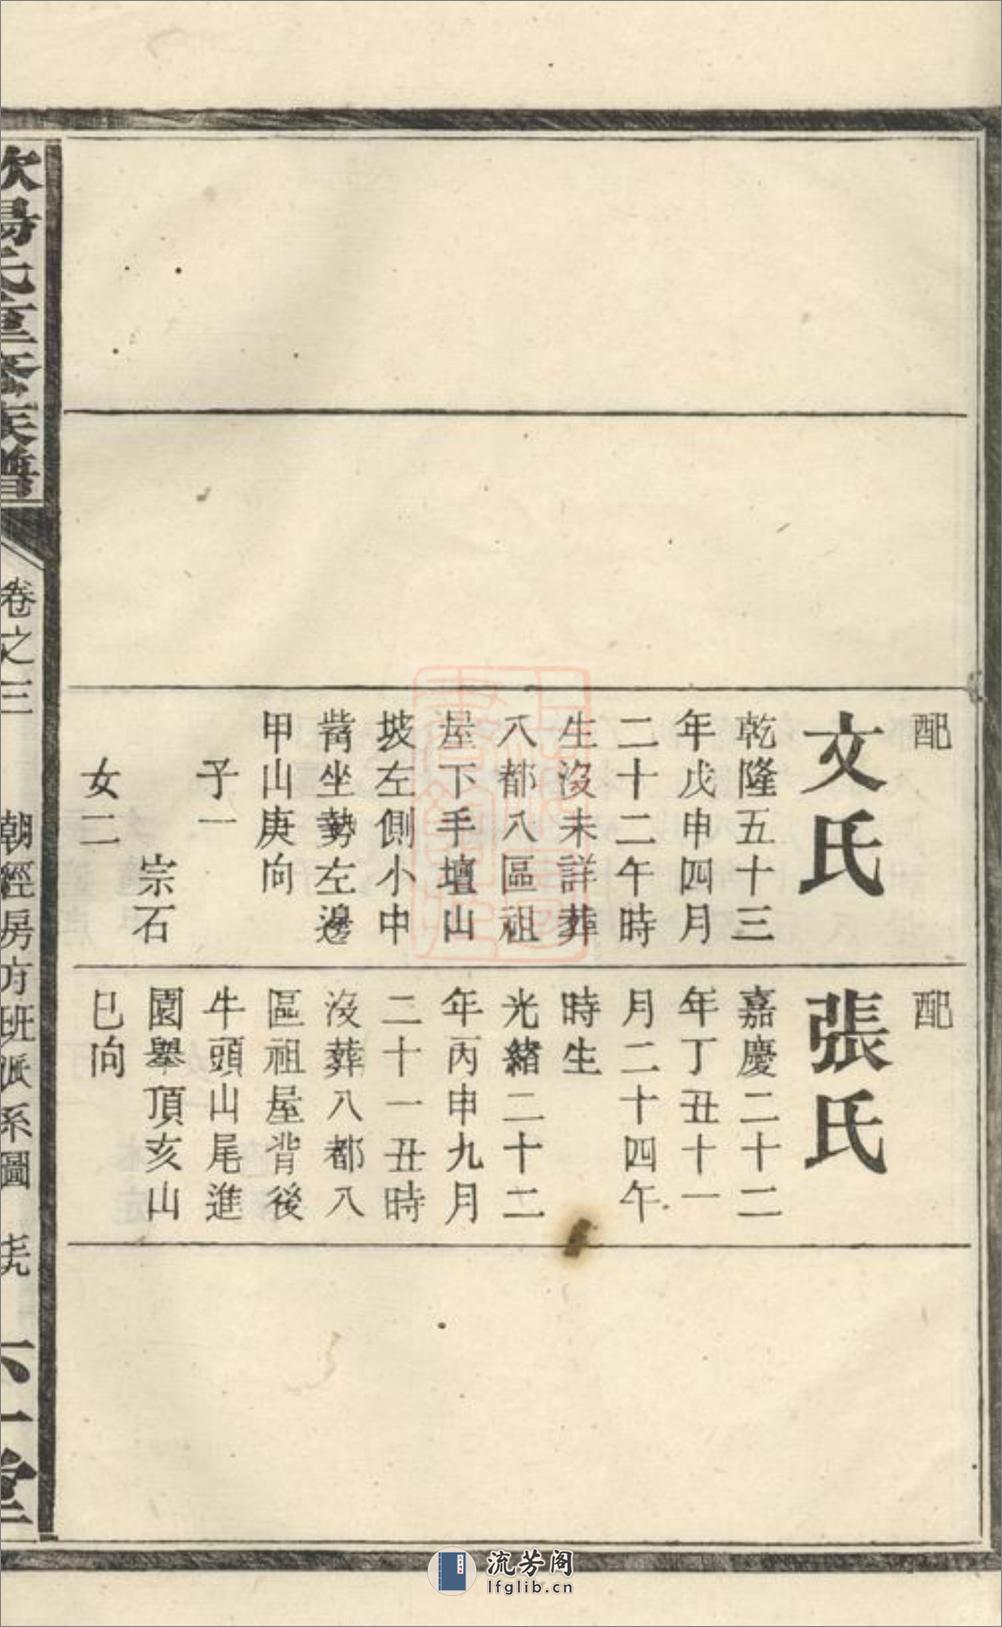 配
文氏
乾隆五十三
年戊申四月
二十二午時
生沒未詳葬
八都八區祖
屋下手壇山
坡左側小中
嵴坐勢左邊
甲山庚向
子一
宗石
女二
配
張氏
嘉慶二十二
年丁丑十一
月二十四午
時生
光緒二十二
年丙申九月
二十一丑時
沒葬八都八
區祖屋背後
牛頭山尾進
園舉頂亥山
巳向
歐陽氏重修族譜
卷之三
朝經房方班派系圖
六一堂
流芳阁
lfglib.cn